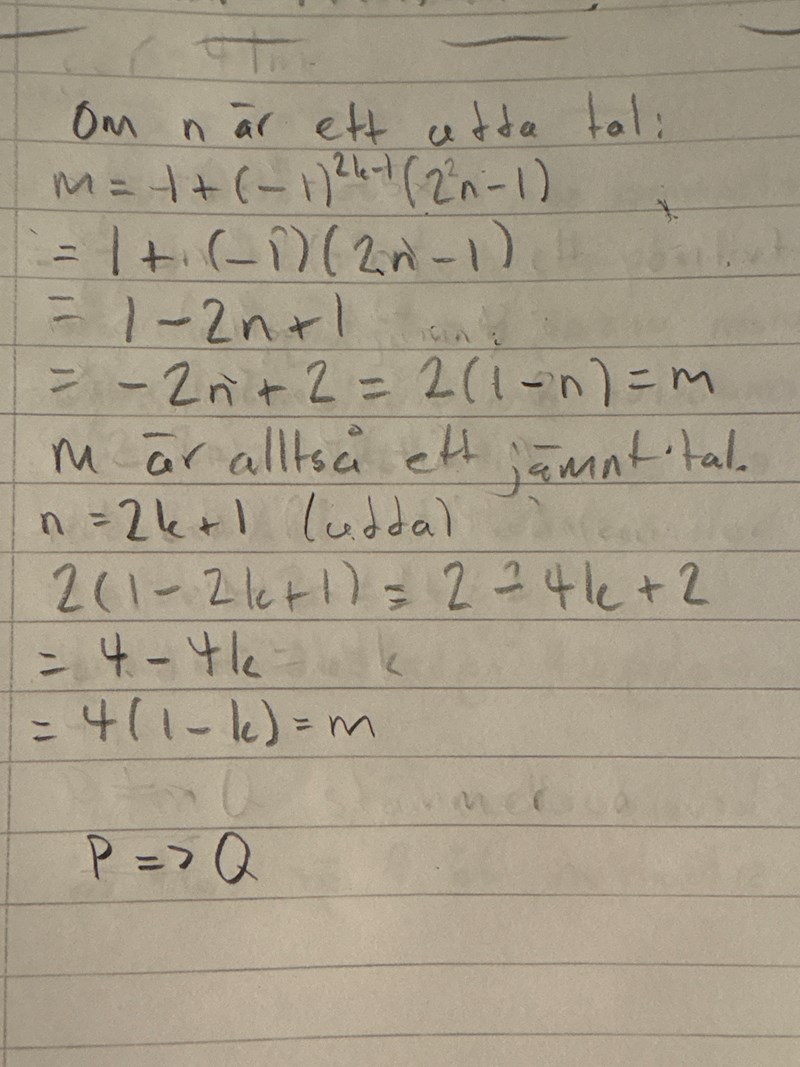 Om n är ett udda tal:
m = 1 + (-1)^2k-1 (2n-1)
= 1 + (-1)(2n-1)
= 1 - 2n + 1
= -2n + 2 = 2(1-n) = m
m är alltså ett jämnt tal.
n = 2k+1 (udda)
2(1-2k+1) = 2 - 4k + 2
= 4 - 4k
= 4(1-k) = m
P => Q